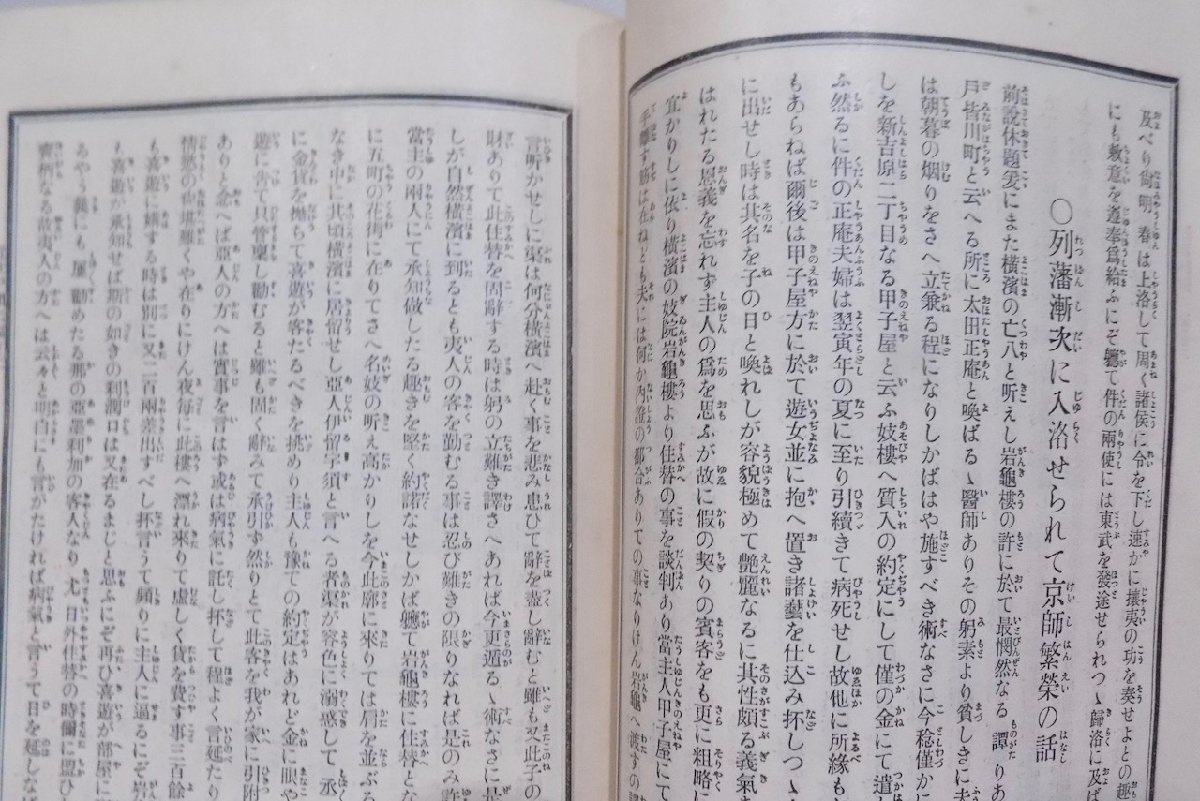 及べり尙明春は上洛して周く諸侯に令を下し速かに攘夷の功を奏せよとの趣
にも敷意を遵奉爲給ふにぞ軈て件の兩使には東武を發途せられつゝ歸洛に及ば
〇列藩漸次に入洛せられて京師繁榮の話
前說休題爰にまた橫濱の亡八と听えし岩龜樓の許に於て最憫然なる譚りあ
戶皆川町と云へる所に太田正庵と喚ばるゝ醫師ありその躬素より貧しきに
は朝暮の烟りをさへ立兼る程になりしかばはや施すべき術なさに今稔僅か
しを新吉原二丁目なる甲子屋と云ふ妓樓へ質入の約定にして僅の金にて遣
ふ然るに件の正庵夫婦は翌寅年の夏に至り引續きて病死せし故他に所緣も
もあらねば爾後は甲子屋方に於て遊女並に抱へ置き諸藝を仕込み抔しつゝ
に出せし時は其名を子の日と喚れしが容貌極めて艶麗なるに其性頗る義氣
はれたる恩義を忘れず主人の爲を思ふが故に假の契りの賓客をも更に粗略に
宜かりしに依り橫濱の妓院岩龜樓より住替の事を談判あり當主人甲子屋にて
手離す筋は在ねども夫には何か內證の都合ありての事なりけん岩龜へ渡すの
言听かせしに渠は何分橫濱へ赴く事を悲み患ひて辭を盡し辭むと雖も又此子の
財ありて此住替を固辭する時は躬の立難き譯さへあれば今更遁るゝ術なさに
しが自然橫濱に到るとも夷人の客を勤むる事は忍び難きの限りなれば是のみ許
當主の兩人にて承知做したる趣きを堅く約諾なせしかば軈て岩龜樓に住替とな
に五町の花街に在りてさへ名妓の听え高かりしを今此廓に來りては肩を並ぶる
なき中に其頃橫濱に居留せし亞人伊留宇須と言へる者渠が容色に溺惑して
に金貨を抛ちて喜遊が客たるべきを挑めり主人も豫ての約定はあれど金に眼や
遊に告て只管稟し勸むると雖も固く辭みて承引ず然りとて此客を我が家に引附
ありと念へば亞人の方へは實事を言はず或は病氣に託し抔して程よく言延たり
情慾の堪難くや在りにけん夜每に此樓へ漂れ來りて虛しく貨を費す事三百餘
も喜遊に婧す時は別に又二百兩差出すべし抔言うて頻りに主人に逼るにぞ岩
も喜遊が承知せば斯の如きの利潤口は又在るまじと思ふにぞ再び喜遊が部屋に
るやう義にも屢勸めたる那の亞墨利加の客人なり尤日外住替の時爾に盟ひ
なる故夷人の方へは云々と明白にも言がたければ病氣と言うて日を延しな